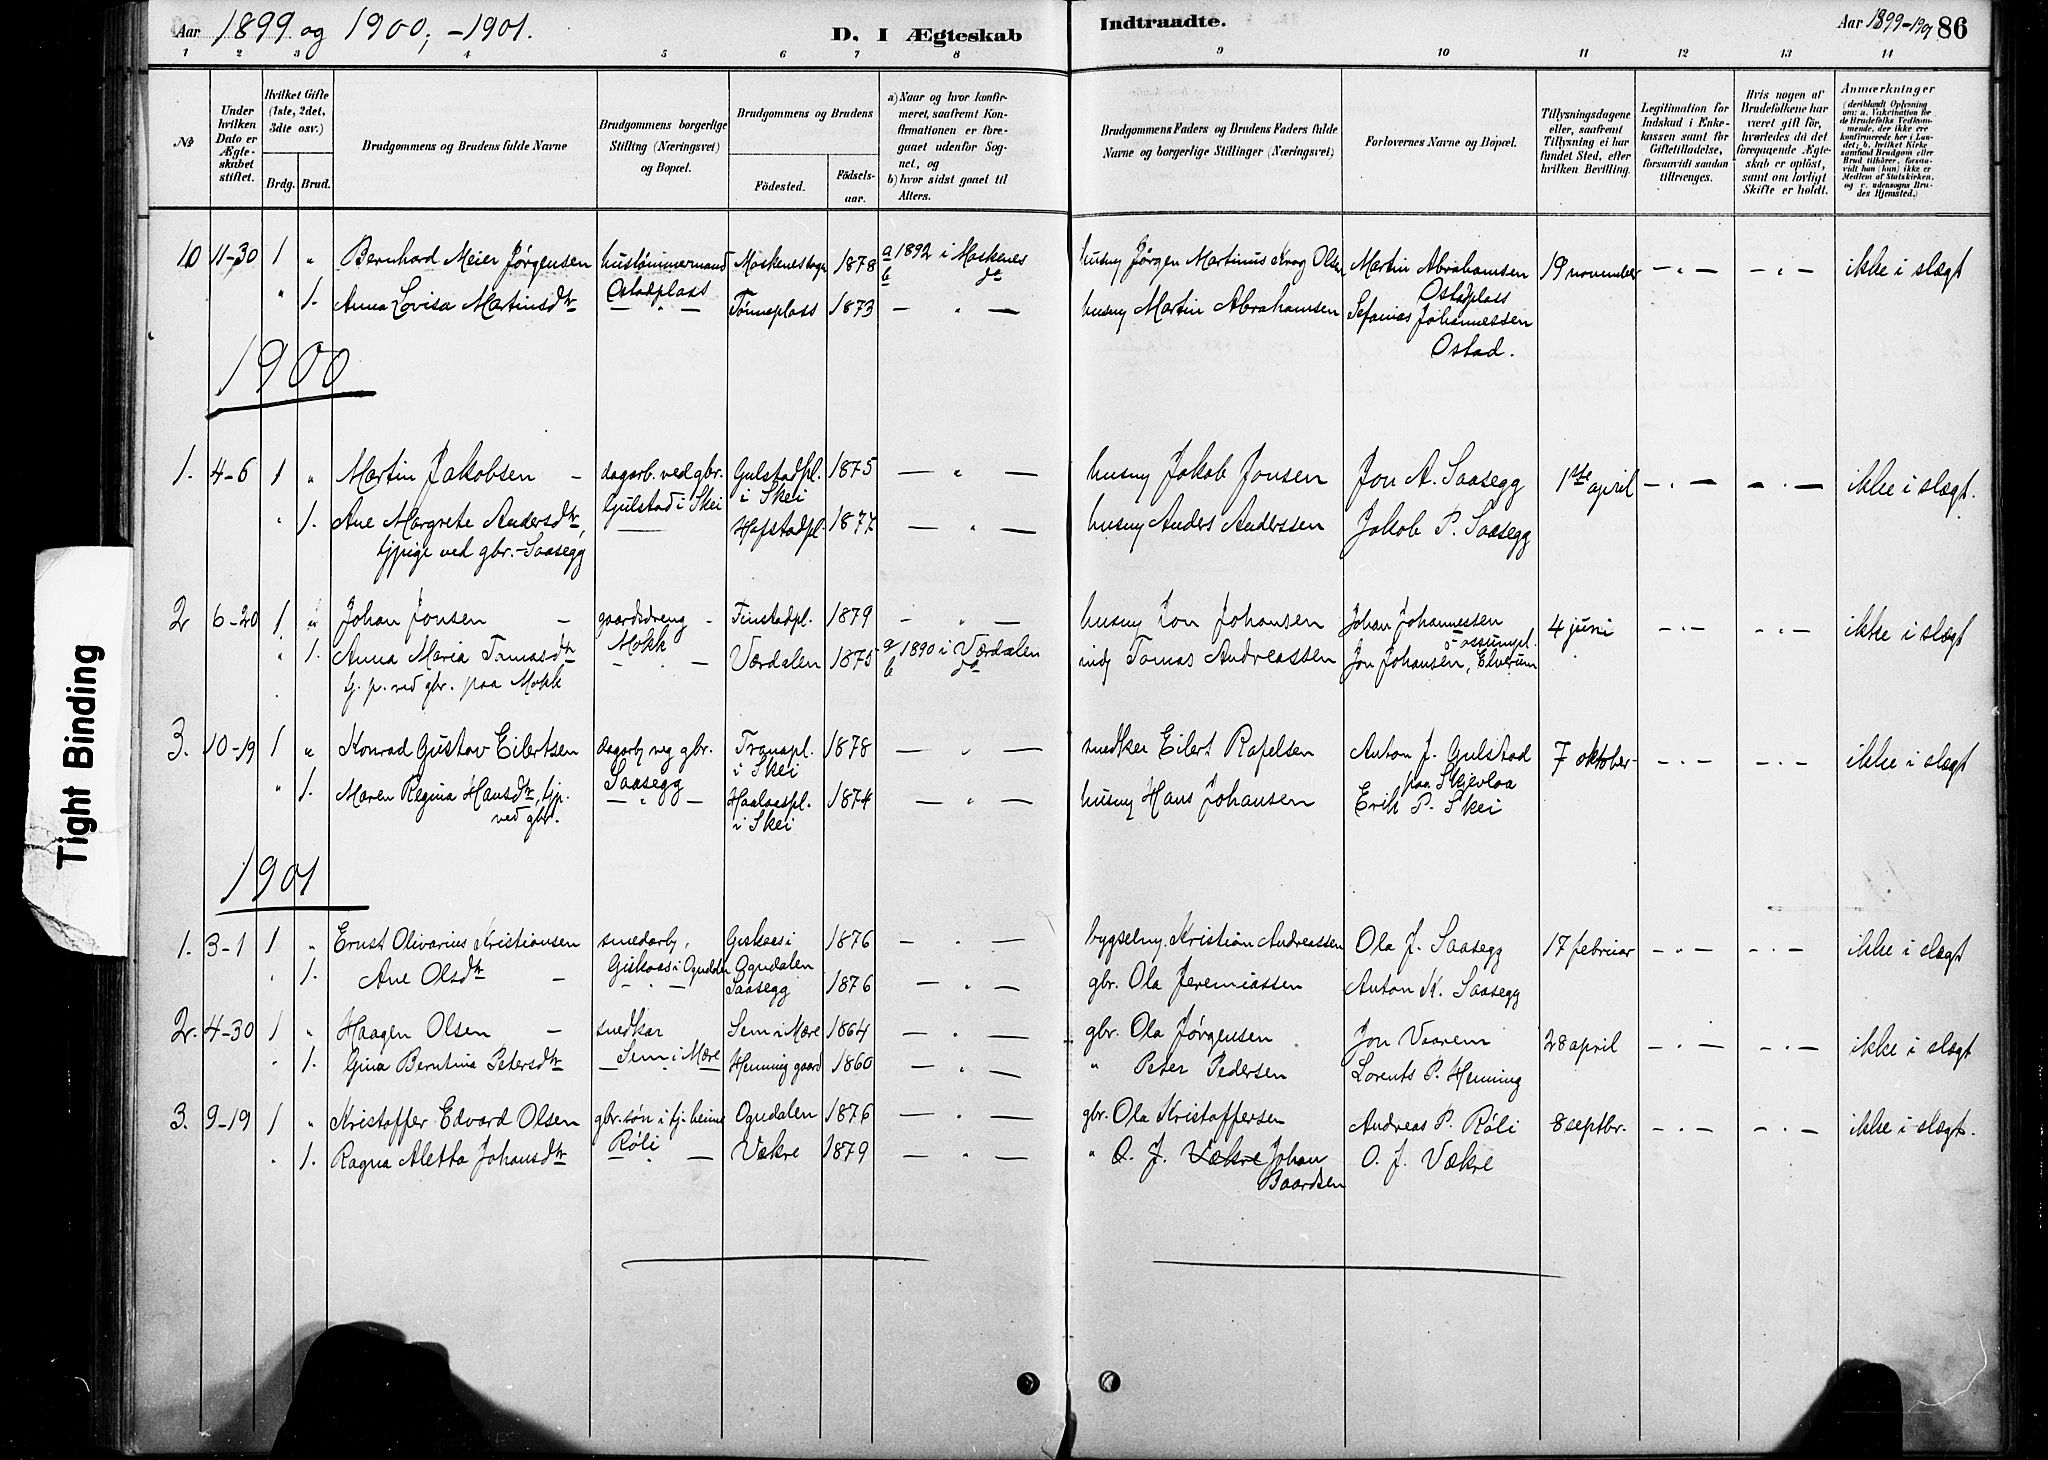 Aar 1899 og 1900, -1901.
D. I Ægteskab
Indtraadte.
Aar 1899-1901
86
1 2 3 4 5 6 7 8 9 10 11 12 13 14
№
Under hvilken Dato er Ægteskabet stiftet.
Hvilket Gifte (1ste, 2det, 3die osv.)
Brdg. Brud.
Brudgommens og Brudens fulde Navne
Brudgommens borgerlige Stilling (Næringsvei) og Bopæl.
Brudgommens og Brudens
Födested.
Födselsaar.
a) Naar og hvor konfirmeret, saafremt Konfirmationen er foregaaet udenfor Sognet, og
b) hvor sidst gaaet til Alters.
Brudgommens Faders og Brudens Faders fulde Navne og borgerlige Stillinger (Næringsvei)
Forlovernes Navne og Bopæl.
Tillysningsdagene eller, saafremt Tillysning ei har fundet Sted, efter hvilken Bevilling.
Legitimation for Indskud i Enkekassen samt for Giftetilladelse, forsaavidt saadan tiltrænges.
Hvis nogen af Brudefolkene har været gift för, hvorledes da det foregaaende Ægteskab er oplöst, samt om lovligt Skifte er holdt.
Anmærkninger (deriblandt Oplysning om: a. Vakcination for de Brudefolks Vedkommende, der ikke ere konfirmerede her i Landet; b. hvilket Kirkesamfund Brudgom eller Brud tilhörer, forsaavidt han (hun) ikke er Medlem af Statskirken, og c. udensogns Brudes Hjemsted.)
10 11-30 1 " Bernhard Meier Jørgensen hustømmermand Moskenes 1878 a 1892 i Moskenes husmg Jørgen Martinus Krog Olsen Martin Abrahamsen 19 november - " - - " - ikke i slægt
Ostadplass b do Ostadplass
" 1. Anna Lovisa Martinsdtr - " - Tønneplass 1873 - " - husmg Martin Abrahamsen Sefanias Johannessen
Ostad.
1900
1. 4-6 1 " Martin Jakobsen - dagarb. ved gbr. Gulstadpl. 1875 - " - husmg Jakob Jonsen Jon A. Saasegg 1ste april - " - - " - ikke i slægt.
Gulstad i Skei i Skei
" 1. Ane Margrete Andersdtr, Hafstadpl. 1877 - " - husmg Anders Anderssen Jakob P. Saasegg
tjpige ved gbr. - Saasegg
2 6-20 1 " Johan Jonsen - gaardsdreng - Tinstadpl. 1879 - " - husmg Jon Johansen Johan Johannessen 4 juni - " - - " - ikke i slægt
Mokk
" 1. Anna Maria Tomasdtr - " - Værdalen 1875 a 1890 i Værdalen indg Tomas Andreassen Jon Johansen, Elverum
b do
tj. p. ved gbr. paa Mokk
3. 10-19 1 " Konrad Gustav Eilertsen dagarb ved gbr. Tranapl. 1878 - " - snedker Eilert Rafelsen Anton J. Gulstad 7 oktober - " - - " - ikke i slægt
Saasegg i Skei paa Skjevloa
" 1. Maren Regina Hansdtr, tjp. - " - Haalaaspl. 1874 - " - husmg Hans Johansen Erik P. Skei
ved gbr. i Skei
1901
1. 3-1 1 " Ernst Olivarius Kristiansen smedarb, Giskaas i 1876 - " - bygselmg, Kristian Andreassen Ola J. Saasegg 17 februar - " - - " - ikke i slægt
Giskaas i Ogndalen Ogndalen
" 1. Ane Olsdtr - " - Saasegg 1876 - " - gbr. Ola Jeremiassen Anton K. Saasegg
2. 4-30 1 " Haagen Olsen - snedkar Sem i Mære 1864 - " - gbr. Ola Jørgensen Jon Vaarem 28 april - " - - " - ikke i slægt
Sem i Mære
" 1. Gina Berntina Petersdtr Henning gaard 1860 - " - " Peter Pedersen Lorents P. Henning
3. 9-19 1 " Kristoffer Edvard Olsen gbr. søn i tj. heime Ogndalen 1876 - " - gbr. Ola Kristoffersen Andreas P. Røli 8 septbr. - " - - " - ikke i slægt.
Røli
" 1. Ragna Aletta Johansdtr - " - Vækre 1879 - " - " O. J. Vækre Johan O. J. Vækre
Baardsen
Tight Binding